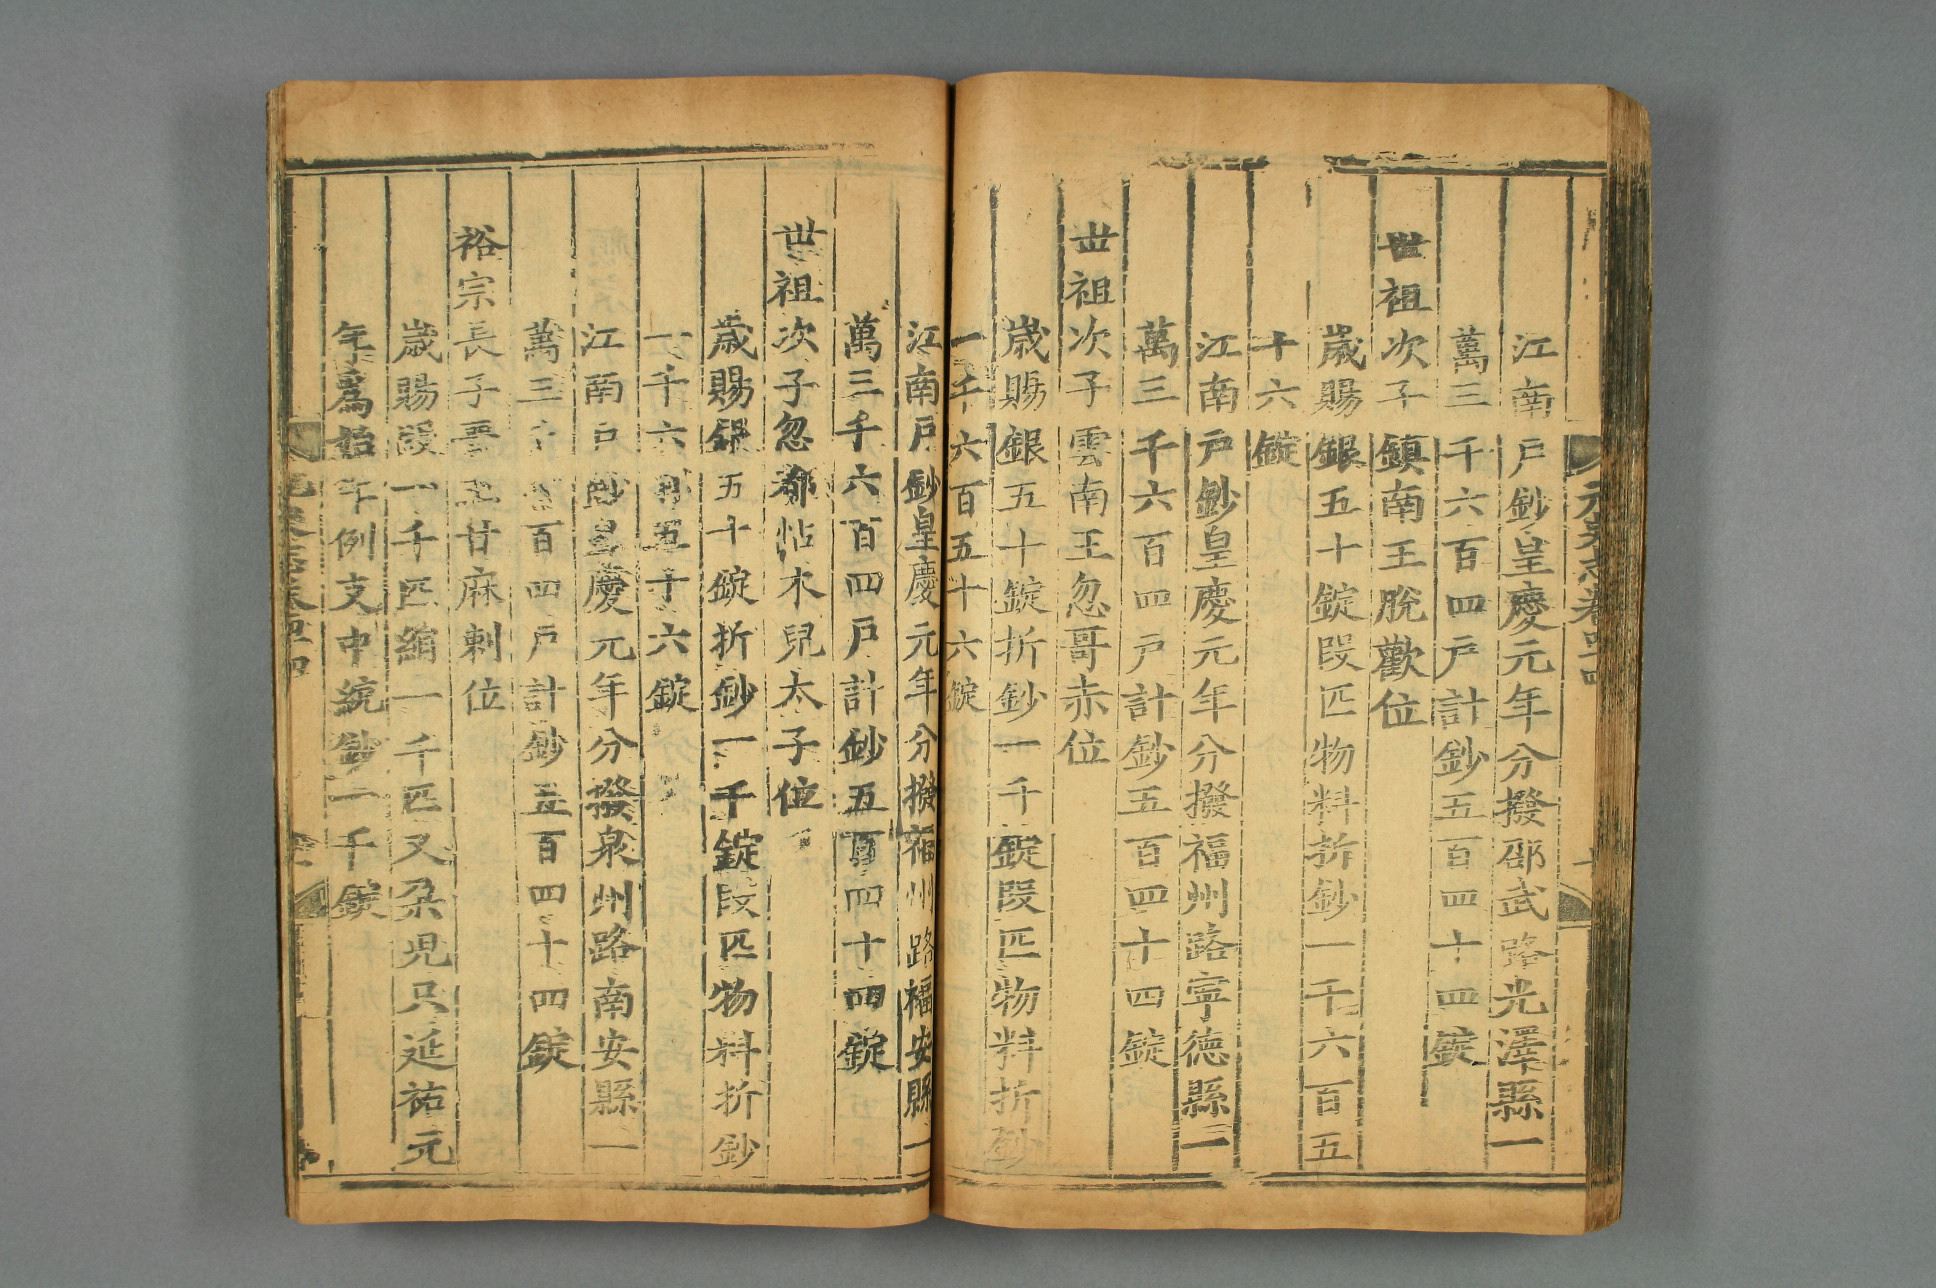 元史志卷四四
江南戶鈔皇慶元年分撥邵武路光澤縣一
萬三千六百四戶計鈔五百四十四錠
世祖次子鎮南王脫歡位
歲賜銀五十錠段匹物料折鈔一千六百五
十六錠
江南戶鈔皇慶元年分撥福州路寧德縣一
萬三千六百四戶計鈔五百四十四錠
世祖次子雲南王忽哥赤位
歲賜銀五十錠折鈔一千錠段匹物料折鈔
一千六百五十六錠
江南戶鈔皇慶元年分撥福州路福安縣一
萬三千六百四戶計鈔五百四十四錠
世祖次子忽都帖木兒太子位
歲賜銀五十錠折鈔一千錠段匹物料折鈔
一千六百五十六錠
江南戶鈔皇慶元年分撥泉州路南安縣一
萬三千六百四戶計鈔五百四十四錠
裕宗長子晉王甘麻剌位
歲賜段一千匹絹一千匹又朵兒只延祐元
年爲始年例支中統鈔一千錠